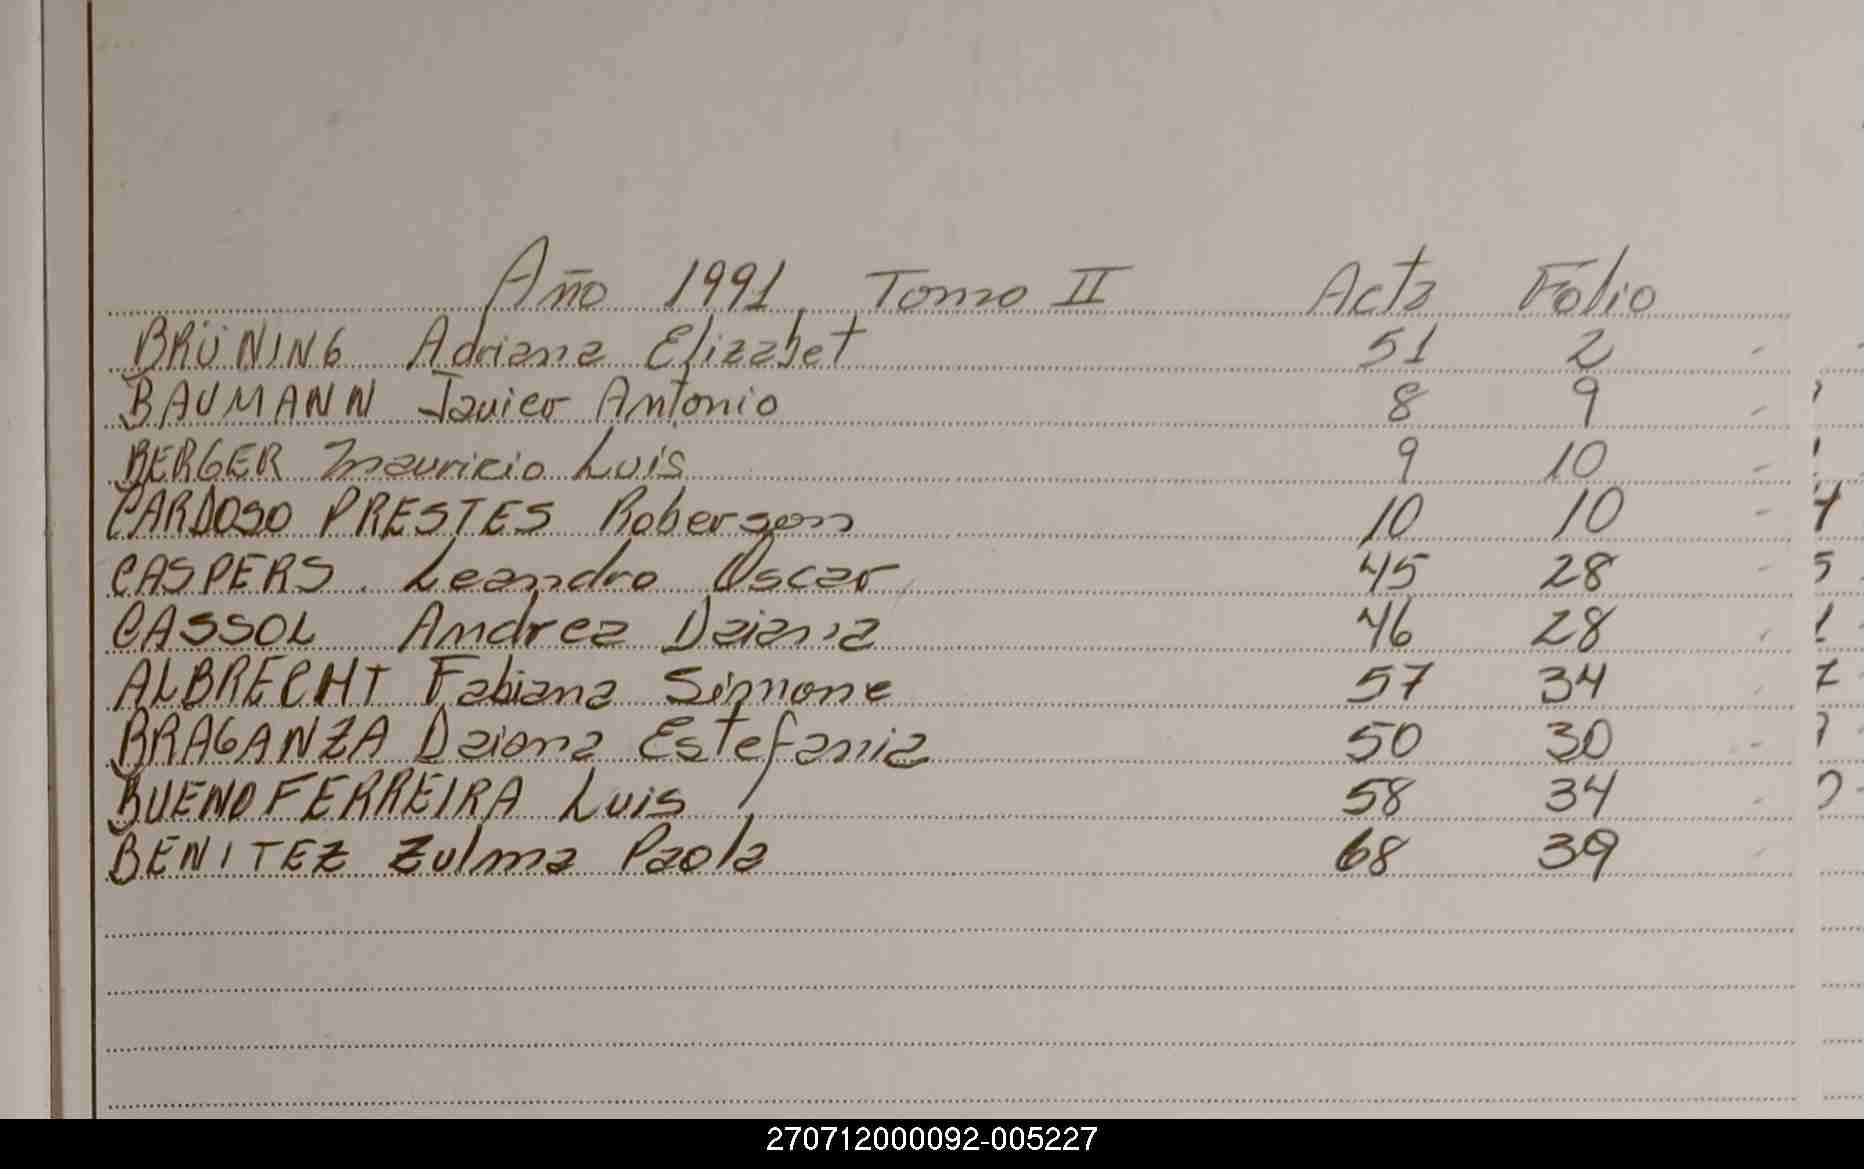 Año 1991 Tomo II Acta Folio
BRÜNING Adriana Elizabet 51 2
BAUMANN Javier Antonio 8 9
BERGER Mauricio Luis 9 10
CARDOSO PRESTES Roberson 10 10
CASPERS Leandro Oscar 45 28
CASSOL Andrea Daiana 46 28
ALBRECHT Fabiana Simone 57 34
BRAGANZA Daiana Estefania 50 30
BUENO FERREIRA Luis 58 34
BENITEZ Zulma Paola 68 39
270712000092-005227